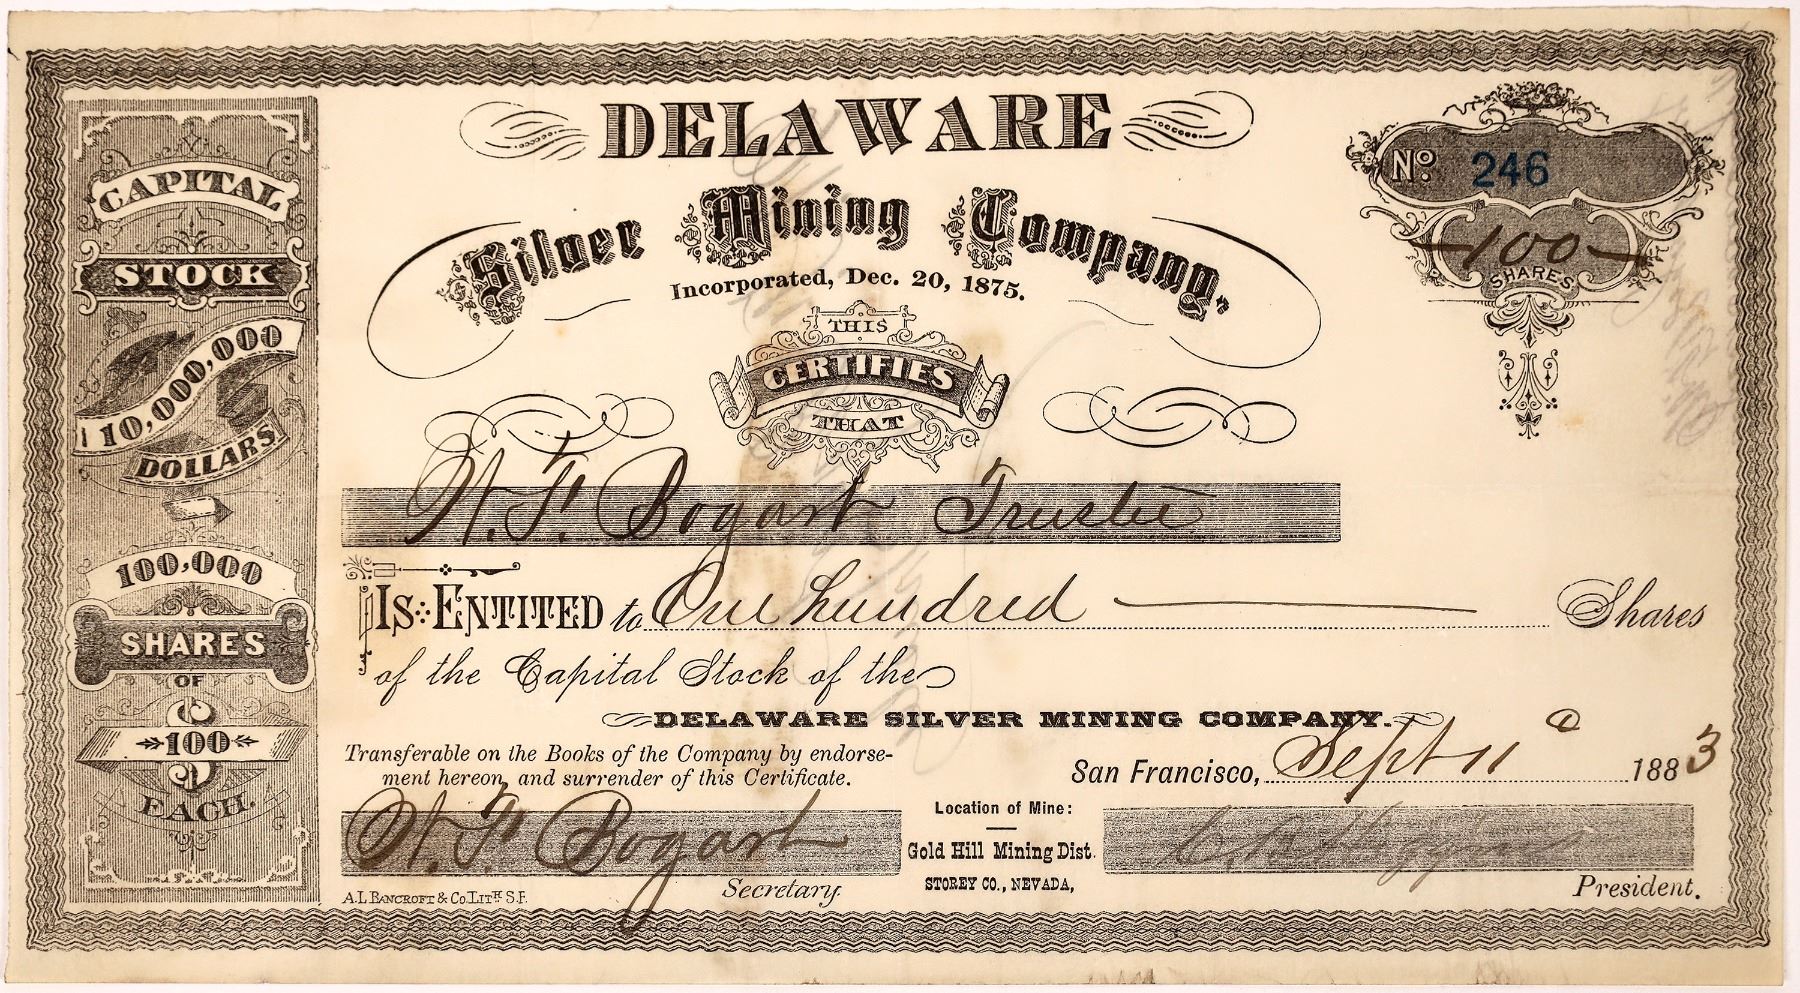 DELAWARE
Silver Mining Company.
Incorporated, Dec. 20, 1875.
No. 246
-100-
SHARES
CAPITAL
STOCK
10,000,000
DOLLARS
100,000
SHARES
OF
$
100
EACH.
THIS
CERTIFIES
THAT
W. F. Bogart Trustee
IS ENTITED to One hundred Shares
of the Capital Stock of the
DELAWARE SILVER MINING COMPANY.
Transferable on the Books of the Company by endorse-
ment hereon, and surrender of this Certificate.
San Francisco, Sept 11 1883
W. F. Bogart
Secretary.
Location of Mine:
Gold Hill Mining Dist.
STOREY CO., NEVADA,
President.
A.L. BANCROFT & CO. LITH. S.F.